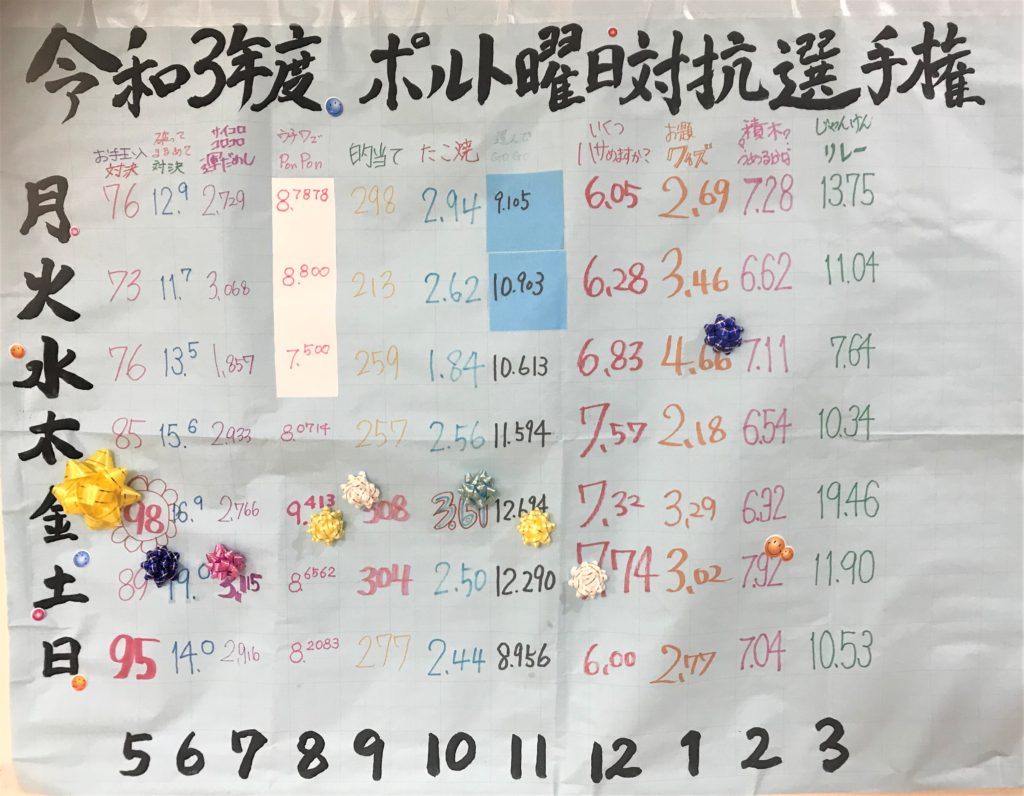 令和3年度 ポルト曜日対抗選手権
お手玉入対決 破ってまるめて対決 サイコロコロコロ運だめし ウチワdePonPon 的当て たこ焼 運んでGOGO いくつハサめますか? お題クイズ 積木? じゃんけんリレー
月 76 12.9 2,729 8.7878 298 2.94 9.105 6.05 2.69 7.28 13.75
火 73 11.7 3,068 8.800 213 2.62 10.903 6,28 3.46 6.62 11.04
水 76 13.5 1,857 7.500 259 1.84 10.613 6,83 4.66 7.11 7.64
木 85 15.6 2,933 8.0714 257 2.56 11.594 7,57 2.18 6.54 10.34
金 98 16.9 2,766 9.413 308 3.61 12.694 7.32 3,29 6.32 19.46
土 89 19.0 3,115 8.6562 304 2.50 12.290 7.74 3,02 7.92 11.90
日 95 14.0 2,916 8.2083 277 2.44 8.956 6,00 2,77 7.04 10.53
5 6 7 8 9 10 11 12 1 2 3